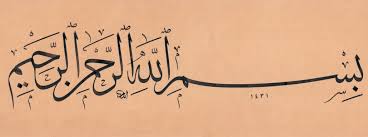 بِسْمِ اللّٰهِ الرَّحْمٰنِ الرَّحِيمِ
١٤٣١